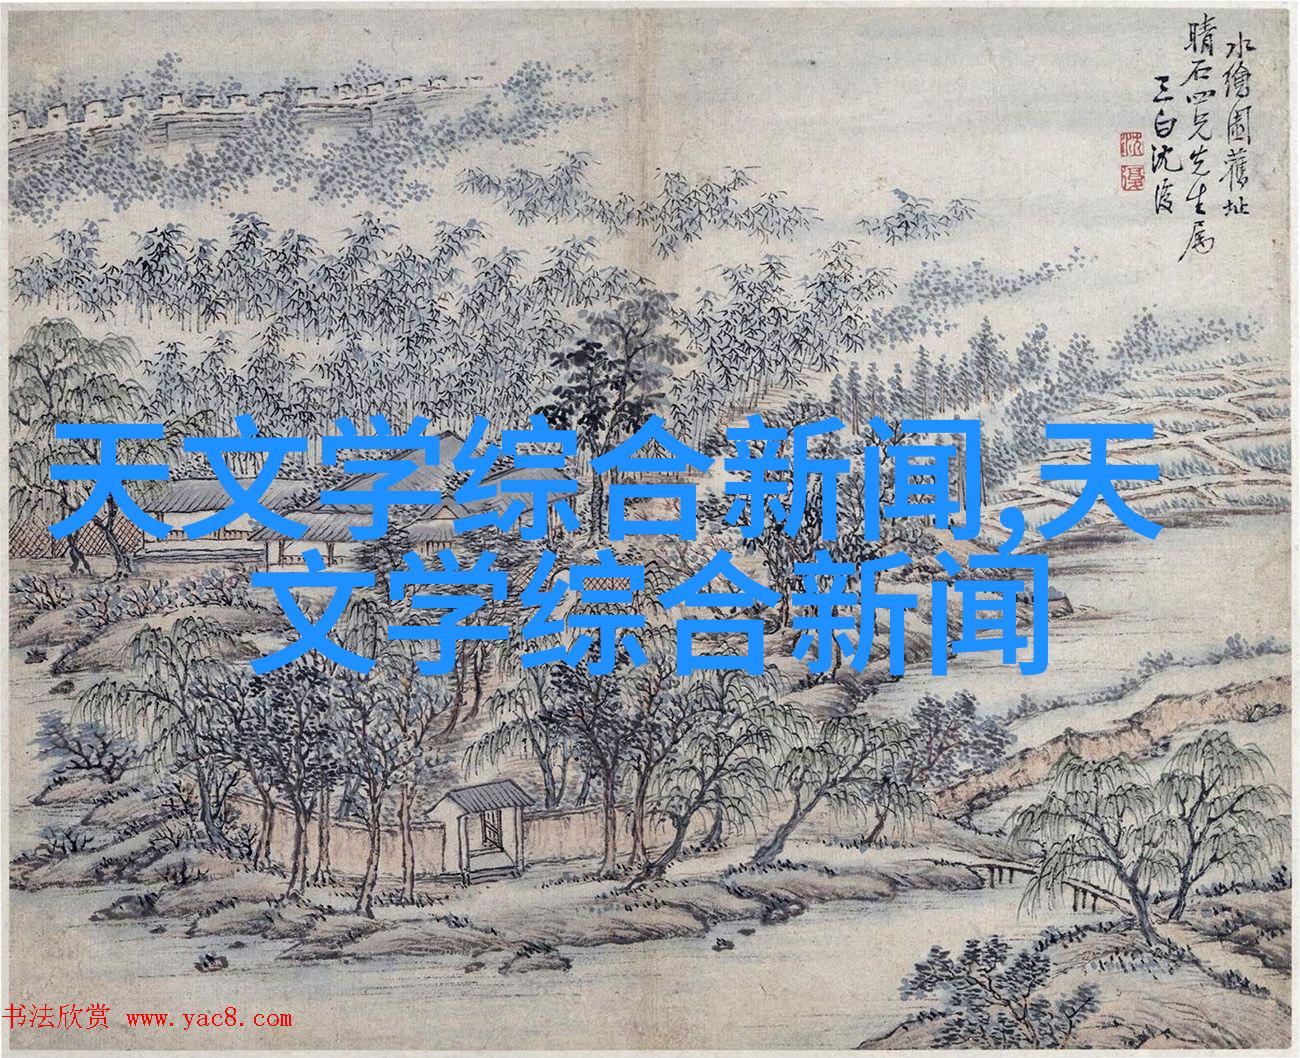 水繪園舊址
晴石四兄先生属
三白沈復
沈
復
天文学综合新闻,天
文学综合新闻
书法欣赏 www.yac8.com